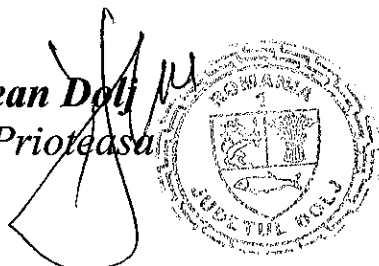 ean Dolj
Prioteasa
ROMANIA
1
JUDETUL DOLJ